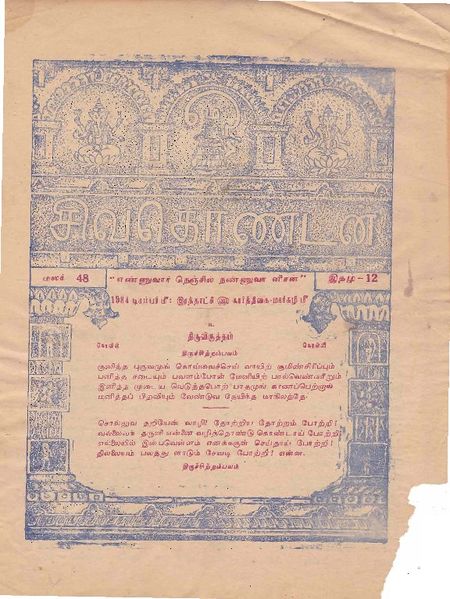 சிவதொண்டன்
மலர் 48
"எண்ணுவார் நெஞ்சில் நண்ணுவா னீசன்"
இதழ்-12
1984 டிசம்பர் மீ: இரத்தாட்சி ஞு கார்த்திகை-மார்கழி மீ
உ
திருவிருத்தம்
கோயில் கோயில்
திருச்சிற்றம்பலம்
குனித்த புருவமுங் கொவ்வைச்செவ் வாயிற் குமிண்சிரிப்பும்
பனித்த சடையும் பவளம்போன் மேனியிற் பால்வெண்ணீறும்
இனித்த முடைய வெடுத்தபொற் பாதமுங் காணப்பெற்றால்
மனித்தப் பிறவியும் வேண்டுவ தேயிந்த மாநிலத்தே.
சொல்லுவ தறியேன் வாழி! தோற்றிய தோற்றம் போற்றி!
வல்லைவந் தருளி என்னை வழித்தொண்டு கொண்டாய் போற்றி!
எல்லையில் இன்பவெள்ளம் எனக்கருள் செய்தாய் போற்றி!
தில்லையம் பலத்து ளாடும் சேவடி போற்றி! என்ன.
திருச்சிற்றம்பலம்